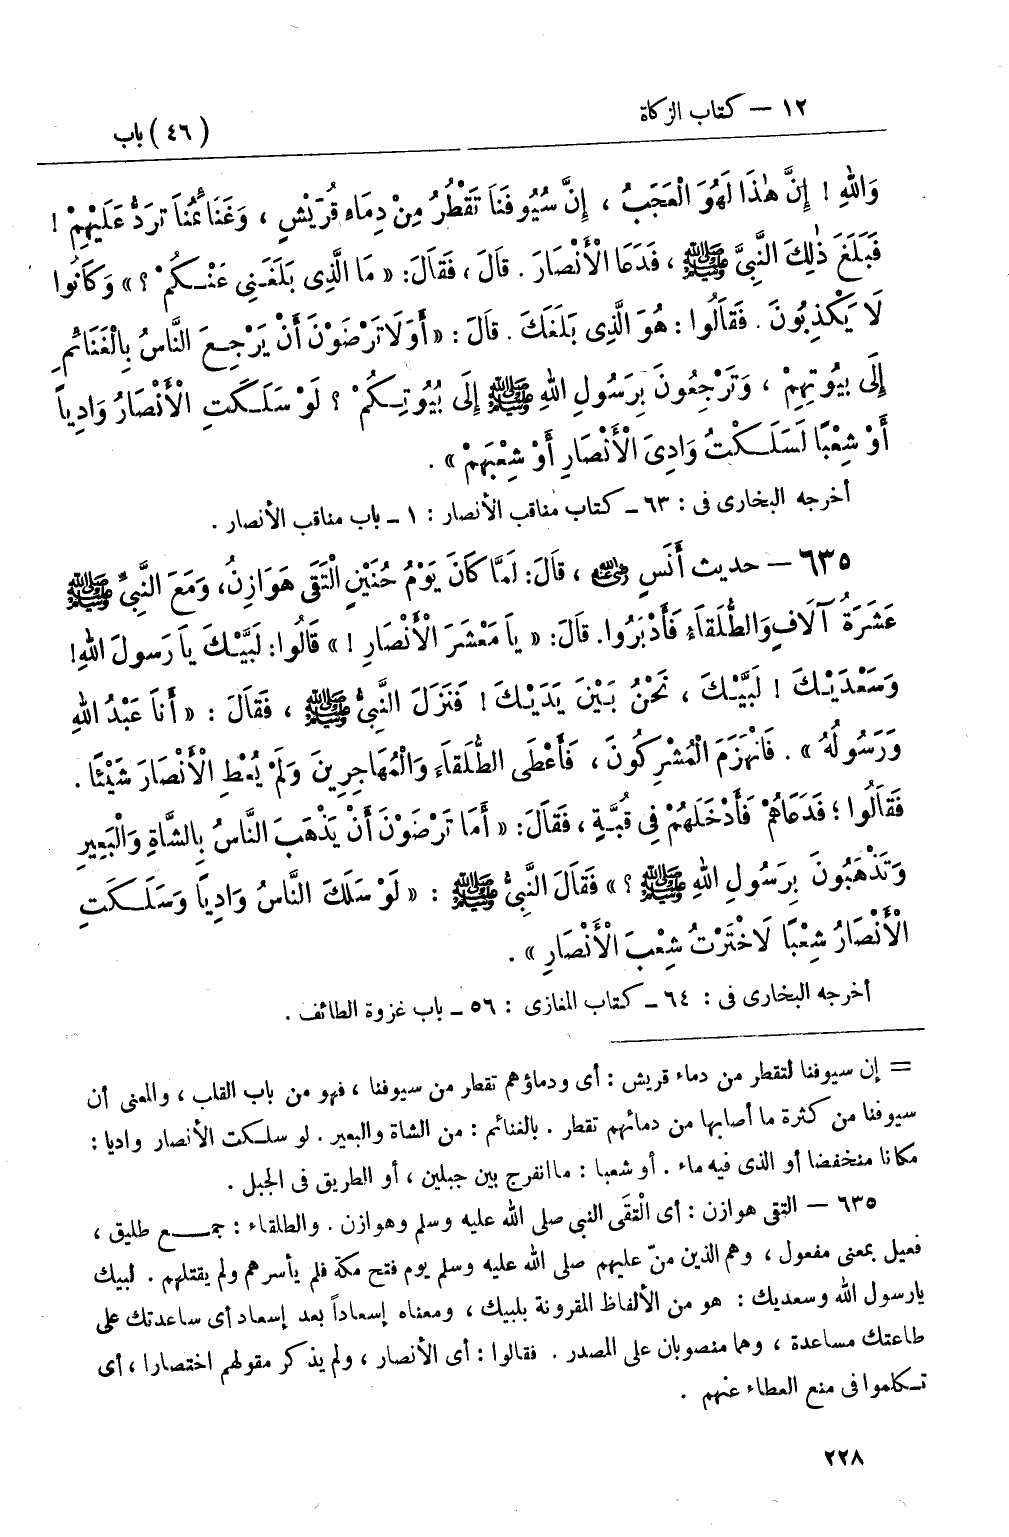 ١٢ — كتاب الزكاة
(٤٦) باب
وَاللهِ ! إِنَّ هٰذَا لَهُوَ الْعَجَبُ ، إِنَّ سُيُوفَنَا تَقْطُرُ مِنْ دِمَاءِ قُرَيْشٍ ، وَغَنَائمُنَا تُرَدُّ عَلَيْهِمْ !
فَبَلَغَ ذٰلِكَ النَّبِيَّ ﷺ ، فَدَعَا الْأَنْصَارَ . قَالَ ، فَقَالَ : « مَا الَّذِى بَلَغَنِى عَنْكُمْ ؟ » وَكَانُوا
لَا يَكْذِبُونَ . فَقَالُوا : هُوَ الَّذِى بَلَغَكَ . قَالَ : « أَوَلَا تَرْضَوْنَ أَنْ يَرْجِعَ النَّاسُ بِالْغَنَائمِ
إِلَى بُيُوتِهِمْ ، وَتَرْجِعُونَ بِرَسُولِ اللهِ ﷺ إِلَى بُيُوتِكُمْ ؟ لَوْ سَلَكَتِ الْأَنْصَارُ وَادِياً
أَوْ شِعْبًا لَسَلَكْتُ وَادِىَ الْأَنْصَارِ أَوْ شِعْبَهُمْ » .
أخرجه البخارى فى : ٦٣ ـ كتاب مناقب الأنصار : ١ ـ باب مناقب الأنصار .
٦٣٥ — حديث أَنَسٍ رضي الله عنه ، قَالَ : لَمَّا كَانَ يَوْمُ حُنَيْنٍ الْتَقَى هَوَازِنُ ، وَمَعَ النَّبِيِّ ﷺ
عَشَرَةُ آلَافٍ وَالطُّلَقَاءُ فَأَدْبَرُوا . قَالَ : « يَا مَعْشَرَ الْأَنْصَارِ ! » قَالُوا : لَبَّيْكَ يَا رَسُولَ اللهِ !
وَسَعْدَيْكَ ! لَبَّيْكَ ، نَحْنُ بَيْنَ يَدَيْكَ ! فَنَزَلَ النَّبِيُّ ﷺ ، فَقَالَ : « أَنَا عَبْدُ اللهِ
وَرَسُولُهُ » . فَانْهَزَمَ الْمُشْرِكُونَ ، فَأَعْطَى الطُّلَقَاءَ وَالْمُهَاجِرِينَ وَلَمْ يُعْطِ الْأَنْصَارَ شَيْئًا .
فَقَالُوا ؛ فَدَعَاهُمْ فَأَدْخَلَهُمْ فِى قُبَّةٍ ، فَقَالَ : « أَمَا تَرْضَوْنَ أَنْ يَذْهَبَ النَّاسُ بِالشَّاةِ وَالْبَعِيرِ
وَتَذْهَبُونَ بِرَسُولِ اللهِ ﷺ ؟ » فَقَالَ النَّبِيُّ ﷺ : « لَوْ سَلَكَ النَّاسُ وَادِيًا وَسَلَكَتِ
الْأَنْصَارُ شِعْبًا لَاخْتَرْتُ شِعْبَ الْأَنْصَارِ » .
أخرجه البخارى فى : ٦٤ ـ كتاب المغازى : ٥٦ ـ باب غزوة الطائف .
= إن سيوفنا لتقطر من دماء قريش : أى ودماؤهم تقطر من سيوفنا ، فهو من باب القلب ، والمعنى أن
سيوفنا من كثرة ما أصابها من دمائهم تقطر . بالغنائم : من الشاة والبعير . لو سلكت الأنصار واديا :
مكانا منخفضا أو الذى فيه ماء . أو شعبا : ما انفرج بين جبلين ، أو الطريق فى الجبل .
٦٣٥ — التقى هوازن : أى الْتقَى النبي صلى الله عليه وسلم وهوازن . والطلقاء : جمع طليق ،
فعيل بمعنى مفعول ، وهم الذين منّ عليهم صلى الله عليه وسلم يوم فتح مكة فلم يأسرهم ولم يقتلهم . لبيك
يارسول الله وسعديك : هو من الألفاظ المقرونة بلبيك ، ومعناه إسعاداً بعد إسعاد أى ساعدتك على
طاعتك مساعدة ، وهما منصوبان على المصدر . فقالوا : أى الأنصار ، ولم يذكر مقولهم اختصارا ، أى
تكلموا فى منع العطاء عنهم .
٢٢٨